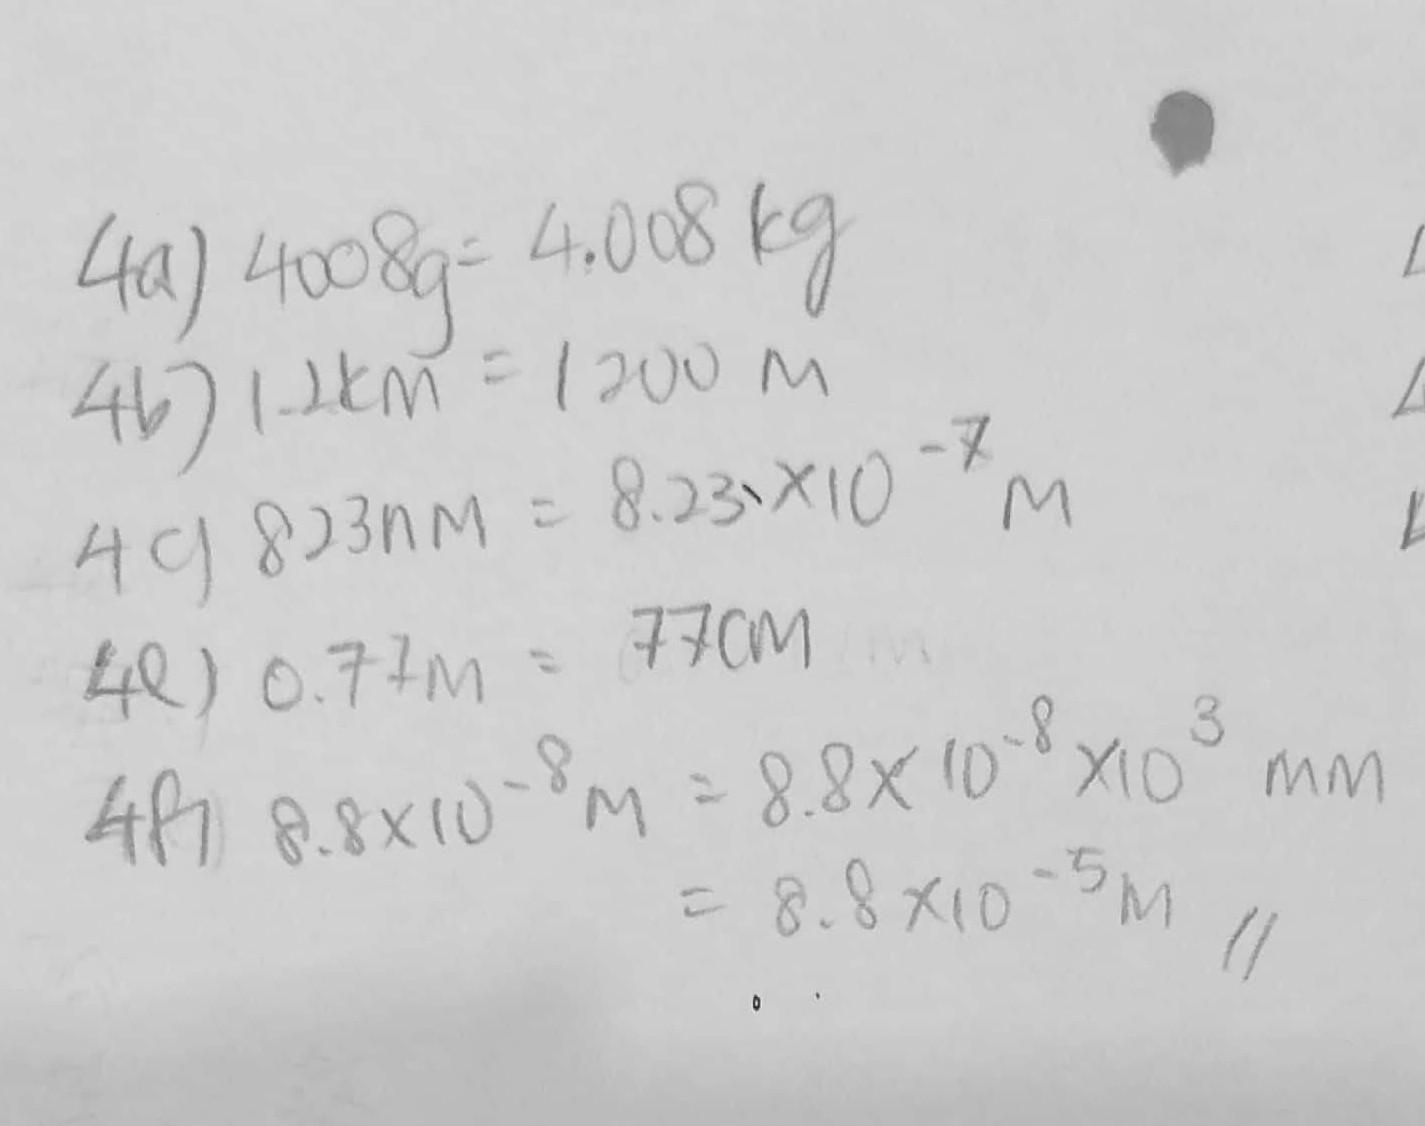 4a) 4008g = 4.008 kg
4b) 1.2km = 1200 m
4c) 823nm = 8.23 × 10⁻⁷ m
4e) 0.77m = 77cm
4f) 8.8×10⁻⁸ m = 8.8 × 10⁻⁸ ×10³ mm
= 8.8 ×10⁻⁵ m //